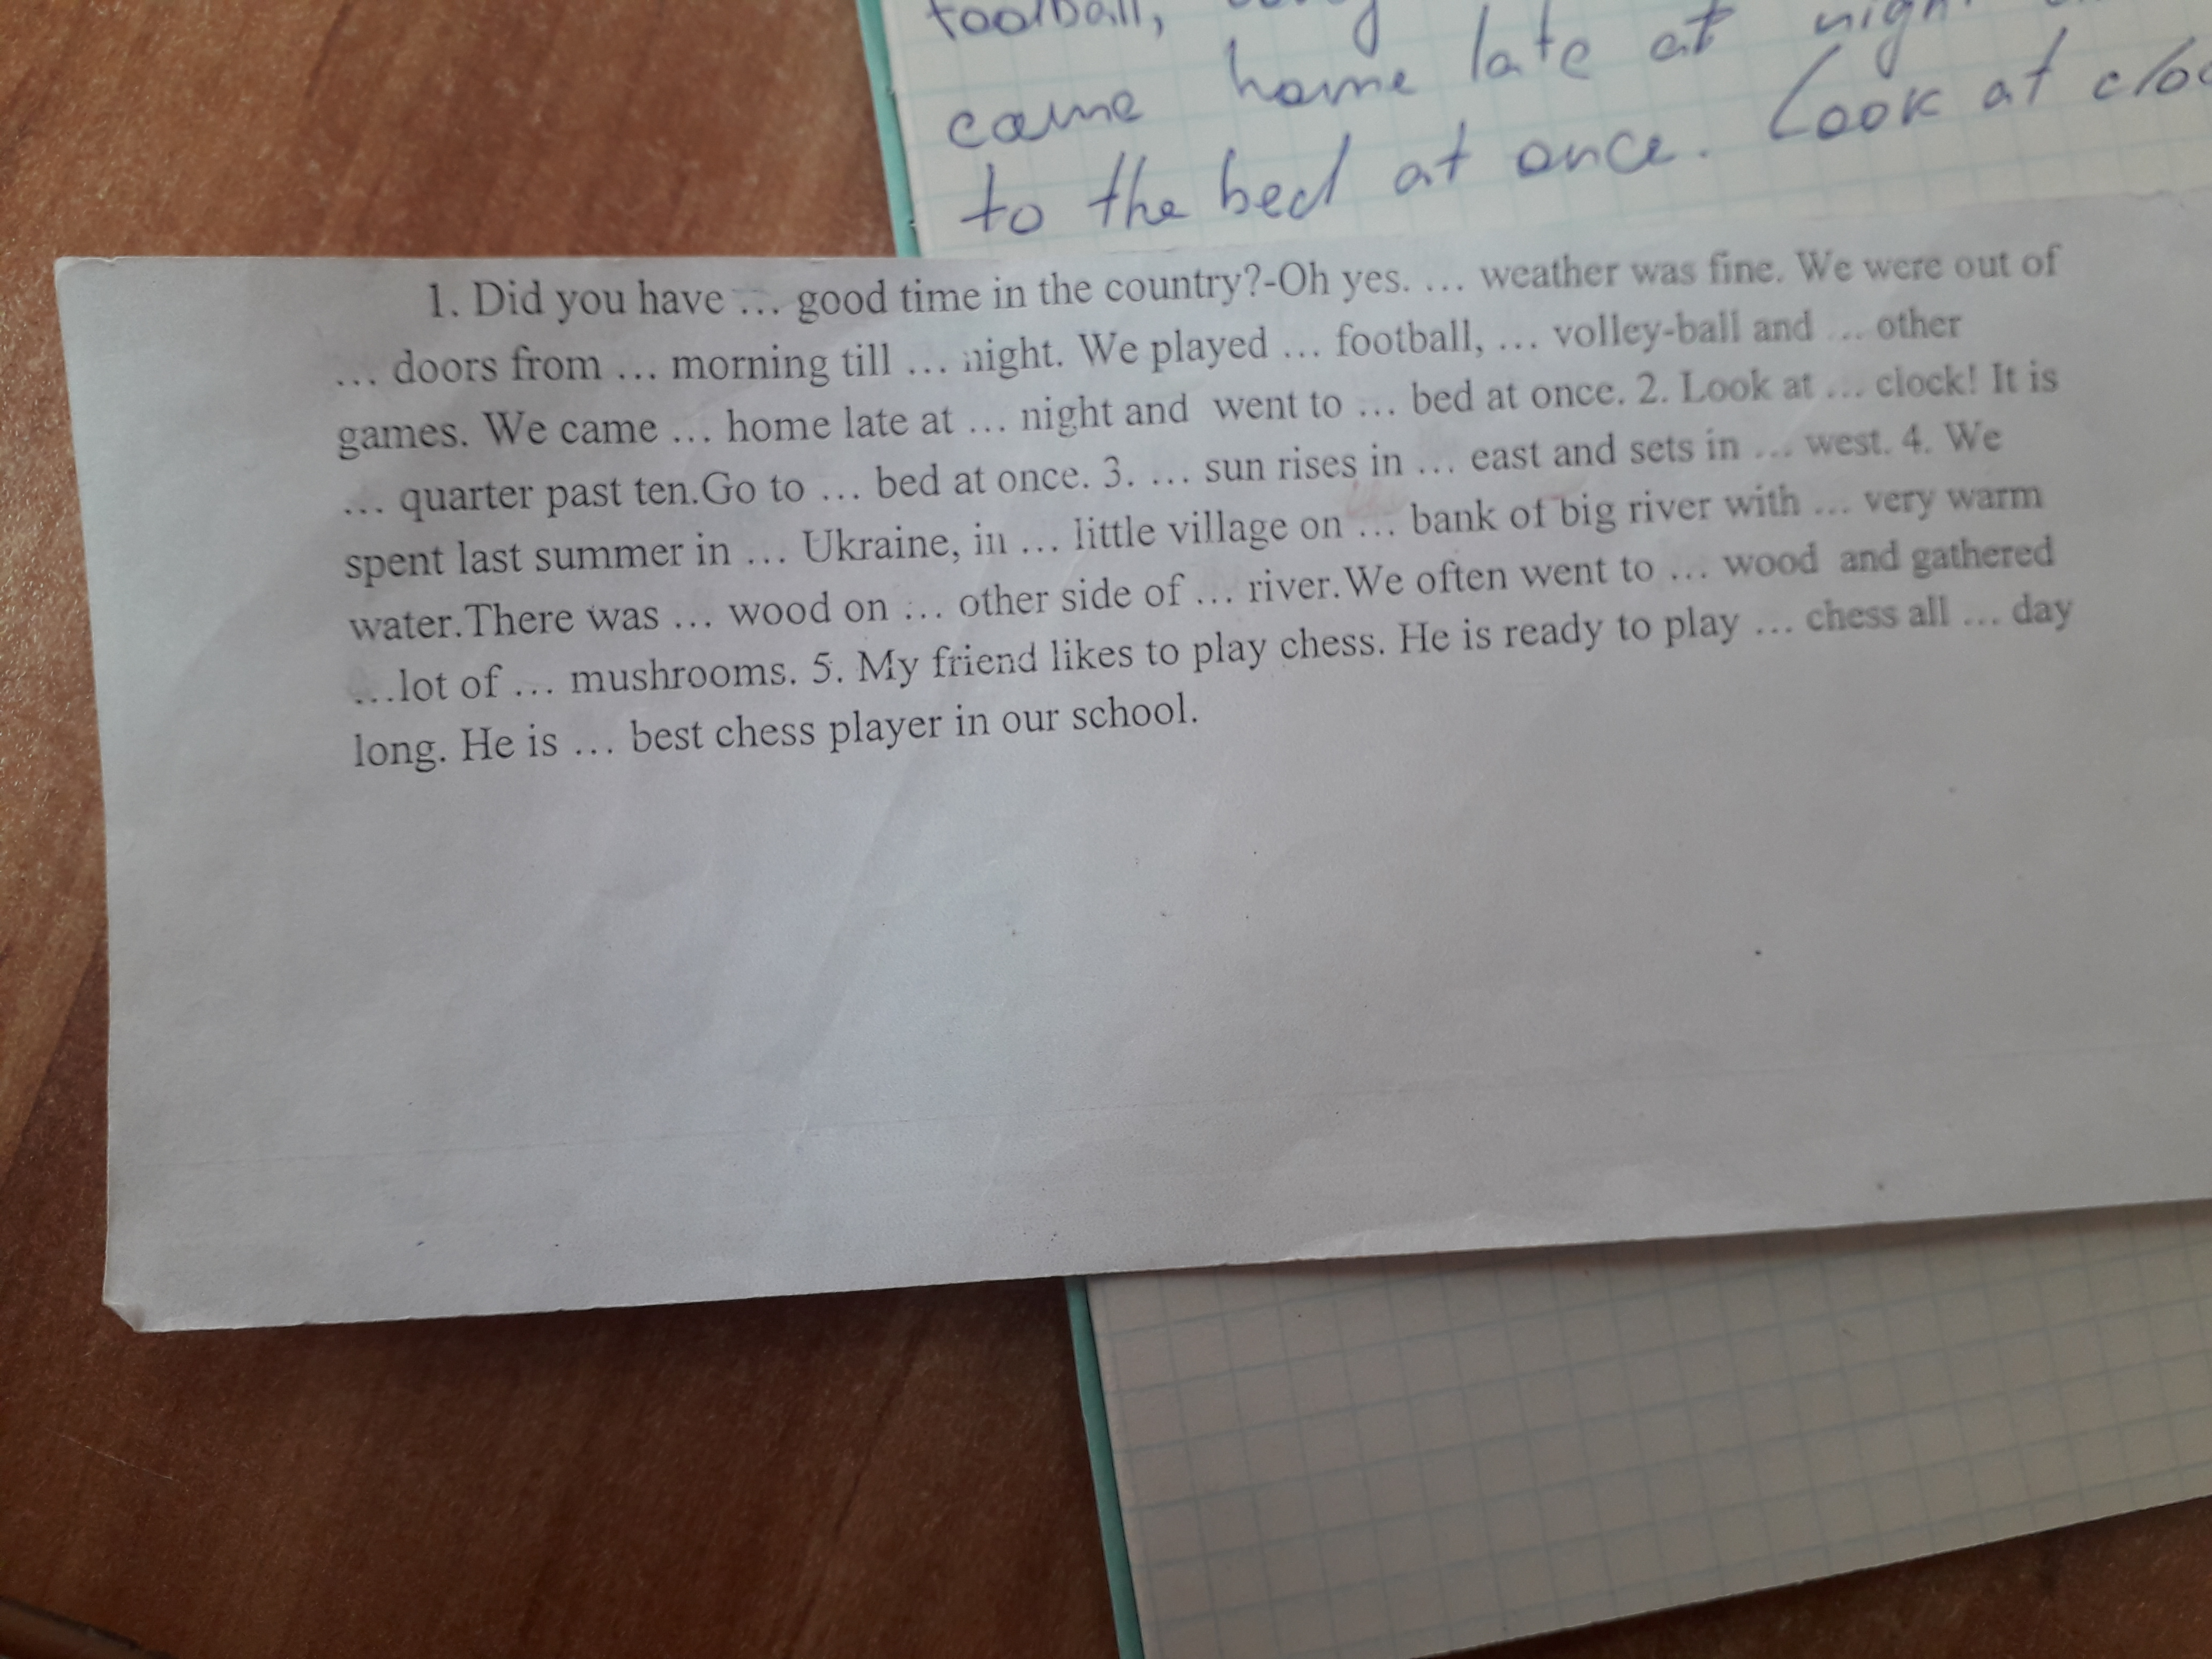 football,
came home late at night
to the bed at once. Look at
1. Did you have ... good time in the country?-Oh yes. ... weather was fine. We were out of
... doors from ... morning till ... night. We played ... football, ... volley-ball and ... other
games. We came ... home late at ... night and went to ... bed at once. 2. Look at ... clock! It is
... quarter past ten.Go to ... bed at once. 3. ... sun rises in ... east and sets in ... west. 4. We
spent last summer in ... Ukraine, in ... little village on ... bank of big river with ... very warm
water.There was ... wood on ... other side of ... river.We often went to ... wood and gathered
...lot of ... mushrooms. 5. My friend likes to play chess. He is ready to play ... chess all ... day
long. He is ... best chess player in our school.